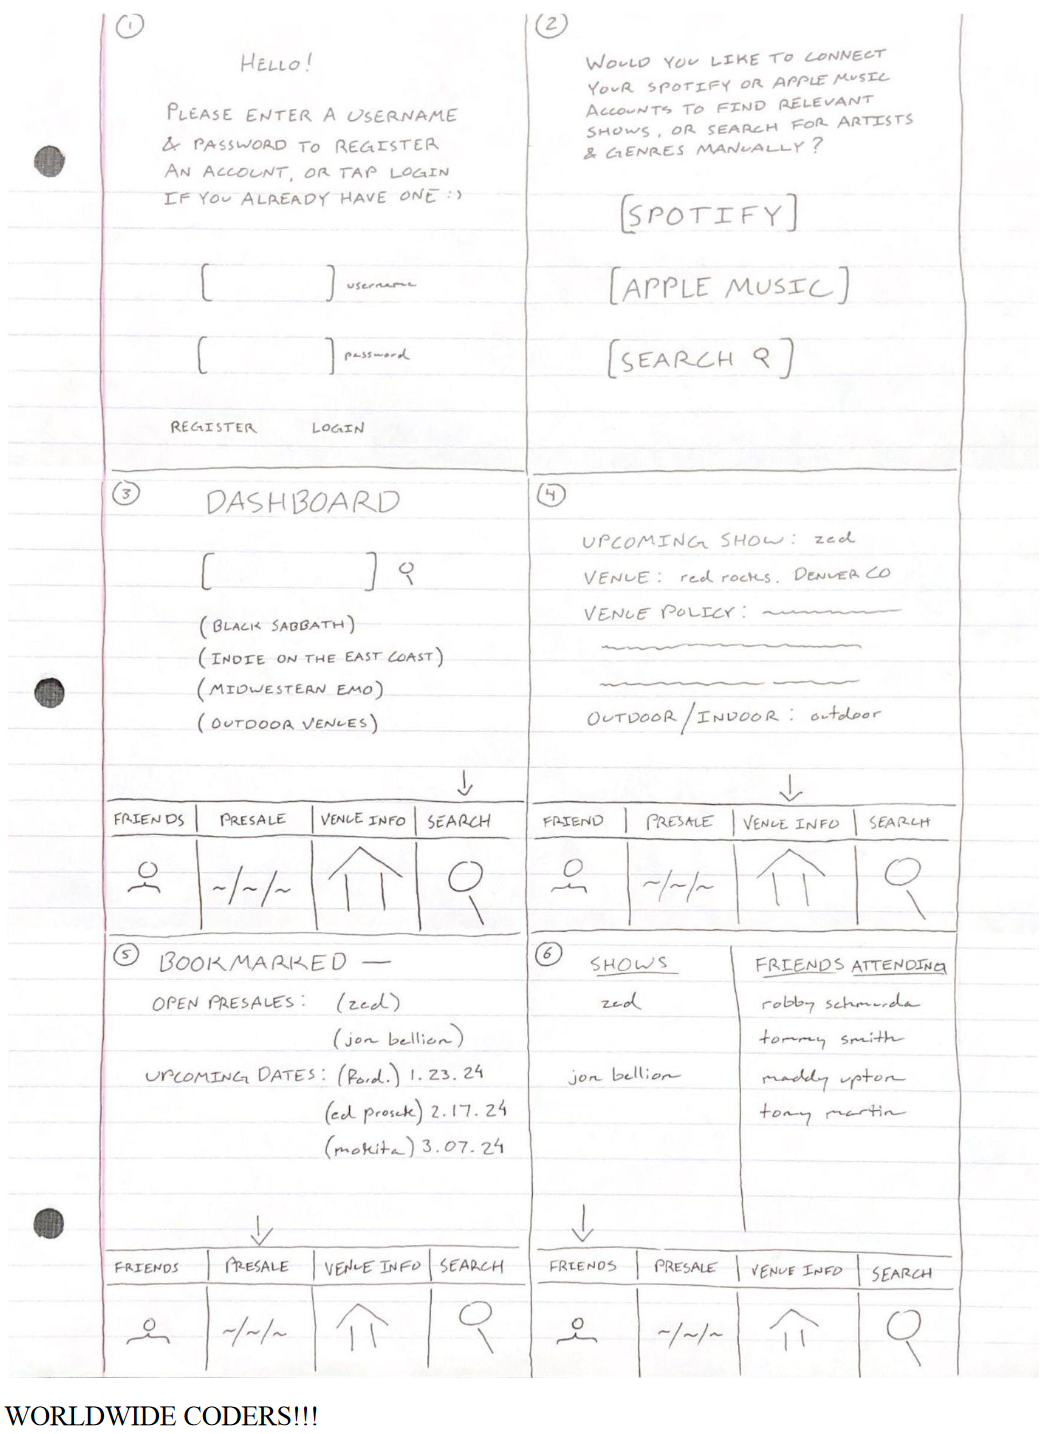 1
HELLO!
PLEASE ENTER A USERNAME
& PASSWORD TO REGISTER
AN ACCOUNT, OR TAP LOGIN
IF YOU ALREADY HAVE ONE :)
[ ] username
[ ] password
REGISTER LOGIN
2
WOULD YOU LIKE TO CONNECT
YOUR SPOTIFY OR APPLE MUSIC
ACCOUNTS TO FIND RELEVANT
SHOWS, OR SEARCH FOR ARTISTS
& GENRES MANUALLY?
[SPOTIFY]
[APPLE MUSIC]
[SEARCH ]
3
DASHBOARD
(BLACK SABBATH)
(INDIE ON THE EAST COAST)
(MIDWESTERN EMO)
(OUTDOOR VENUES)
FRIENDS PRESALE VENUE INFO SEARCH
~/~/~
4
UPCOMING SHOW: zed
VENUE: red rocks, DENVER CO
VENUE POLICY:
OUTDOOR/INDOOR: outdoor
FRIEND PRESALE VENUE INFO SEARCH
~/~/~
5
BOOKMARKED —
OPEN PRESALES: (zed)
(jon bellion)
UPCOMING DATES: 1.23.24
(ed prosek) 2.17.24
(mokita) 3.07.24
FRIENDS PRESALE VENUE INFO SEARCH
~/~/~
6
SHOWS FRIENDS ATTENDING
zed robby schmurda
tommy smith
jon bellion maddy upton
tony martin
FRIENDS PRESALE VENUE INFO SEARCH
~/~/~
WORLDWIDE CODERS!!!